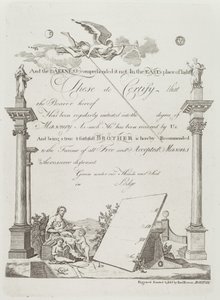 And the DARKNESS comprehended it not. In the EAST a place of light
These do Certify that
the Bearer hereof
Has been regularly initiated into the degree of
MASONRY As such He has been received by Us
And being a true & faithfull BROTHER is hereby Recommended
to the Favour of all Free and Accepted Masons
wheresoever dispersed
Given under our Hands and Seal
in Lodge